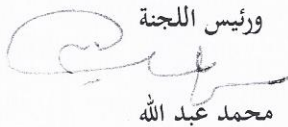 ورئيس اللجنة
محمد عبد الله